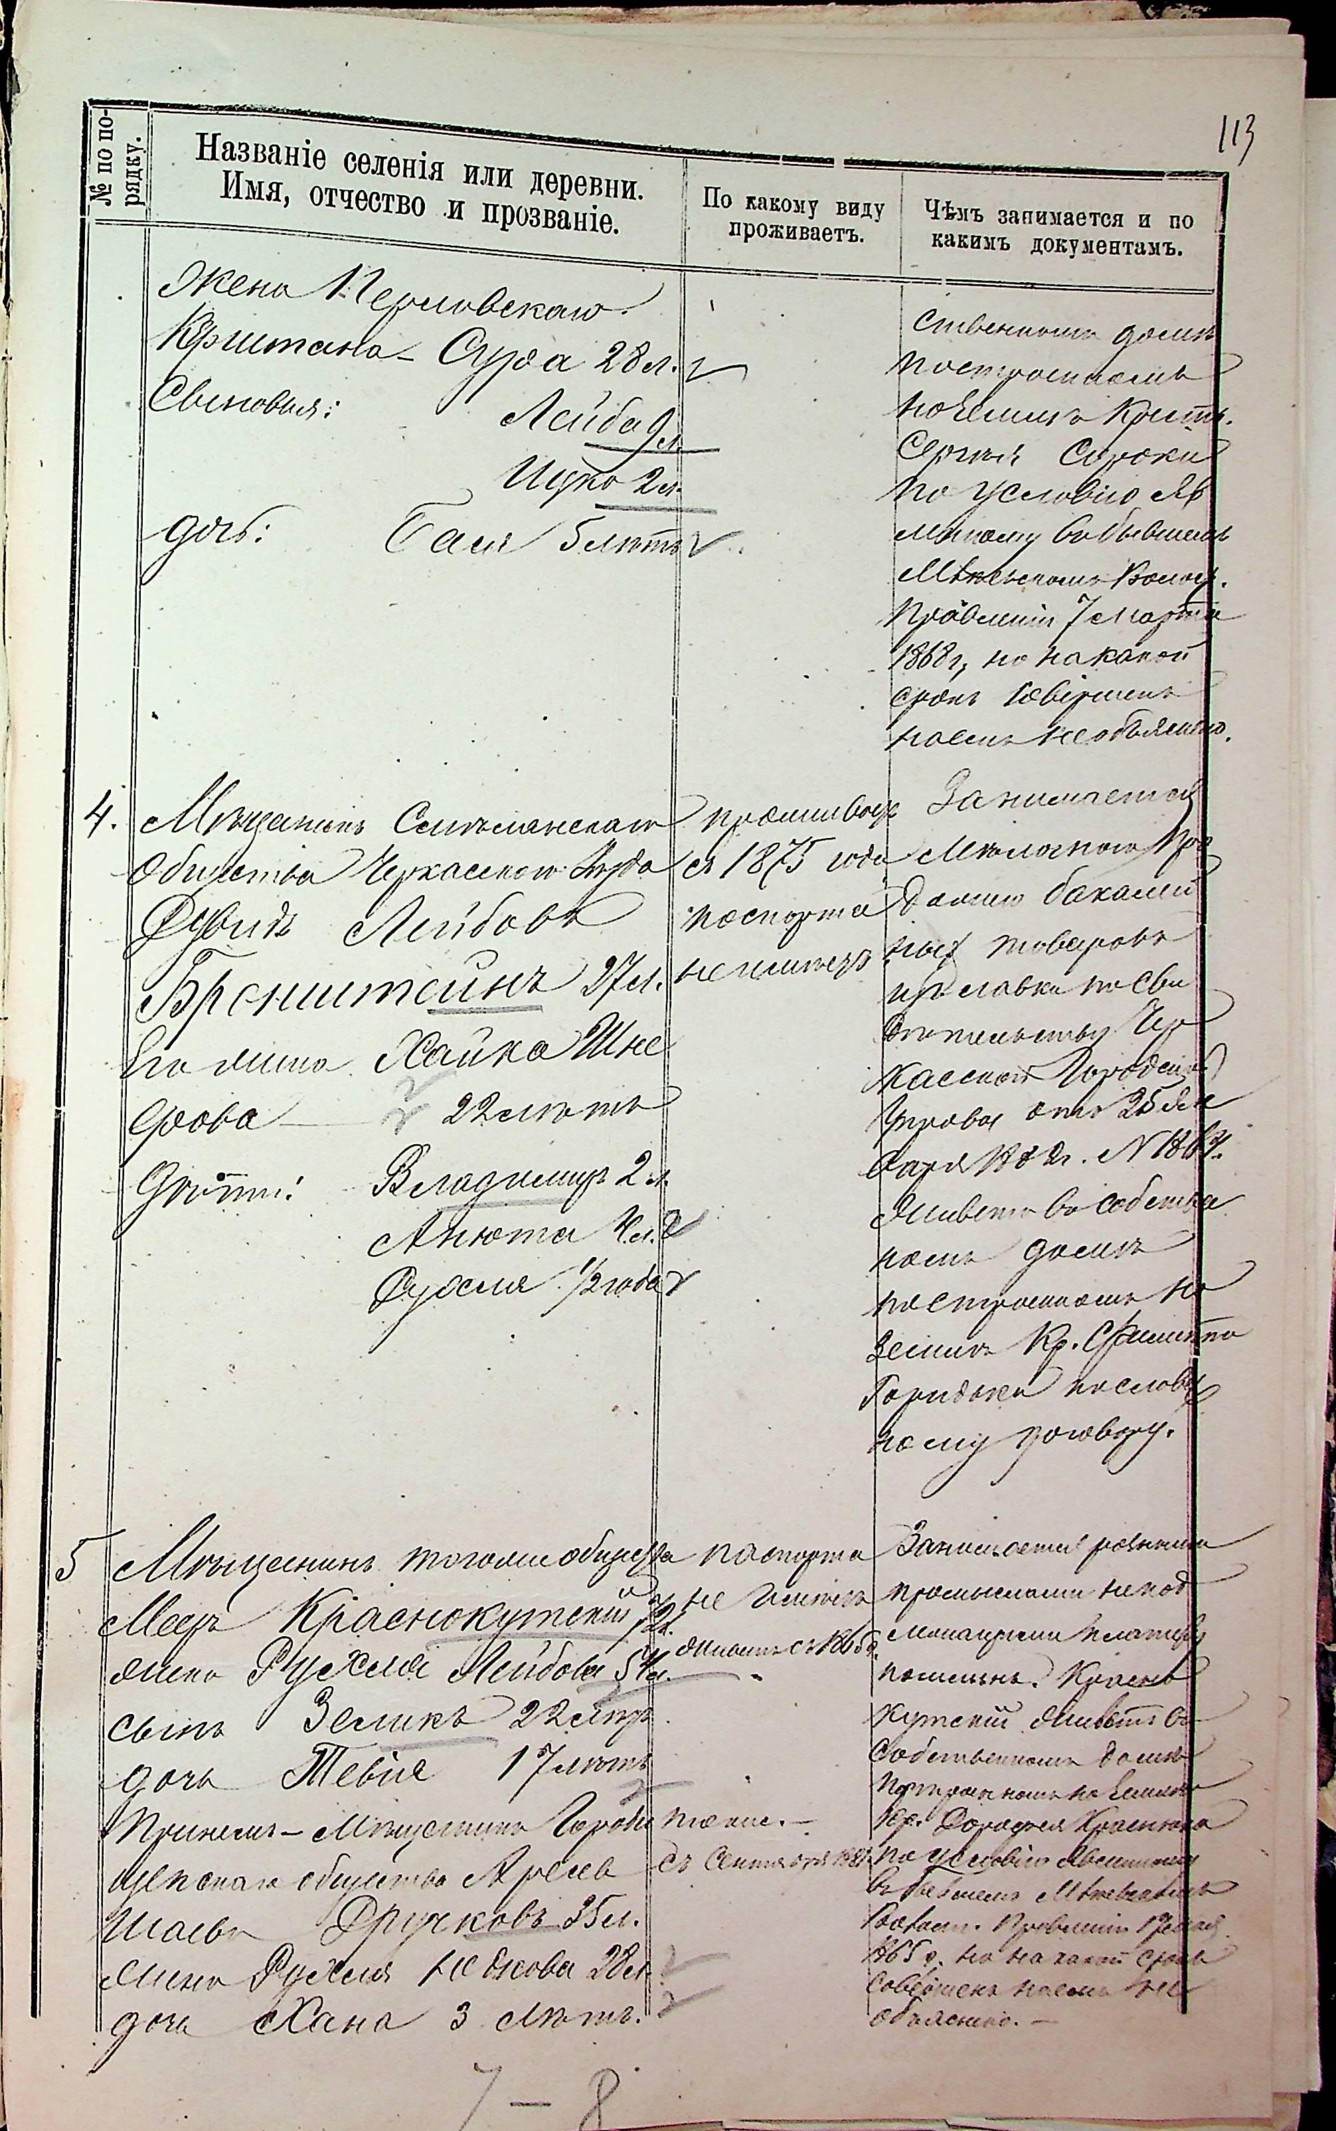 113
№ по по-
рядку.
Названіе селенія или деревни.
Имя, отчество и прозваніе.
По какому виду
проживаетъ.
Чѣмъ занимается и по
какимъ документамъ.
Жена
Сура 28 л.
Сыновья:
Лейба 9 л.
Ицко 2 л.
дочь:
Бася 5 лѣтъ
ственномъ домѣ
построенномъ
на землѣ Крест.
Сергѣя Сороки
по условію яв
леному въ бывшемъ
Волост.
Правленіи 7 марта
1868 г, но на какой
срокъ совершенъ
наемъ не объяснено.
4.
Мѣщанинъ Смѣлянскаго
общества Черкасскаго уѣзда
Дувидъ Лейбовъ
Бронштейнъ 27 л.
Его жена Хайка Шне
ерова
22 лѣтъ
Дѣти: Владимиръ 2 л.
Анюта 4 л.
Рухля 1/2 года
проживаетъ
съ 1875 года
паспорта
не имѣетъ
Занимается
мелочною про
дажею бакалей
ныхъ товаровъ
изъ лавки по сви
дѣтельству Чер
касской Городской
Управы отъ 25 Ян
варя 1882 г. N
Живетъ въ собствен
номъ домѣ
построенномъ на
землѣ Кр.
по словес
ному договору.
5
Мѣщанинъ того же общества
Мееръ Краснокутскій
жена Рухля Лейбова 54 л.
сынъ Зеликъ 22 лѣтъ
дочь Тевіе 17 лѣтъ
Мѣщанинъ Городи
щенскаго общества Арель
Дручковъ 35 л.
жена Рухля 28 л.
дочь Хана 3 лѣтъ.
паспорта
не имѣетъ
живетъ съ
тоже. —
съ Сентября
Занимается разными
промыслами не под
лежащими платежу
пошлинъ. Красно
кутскій живетъ въ
собственномъ домѣ
построенномъ на землѣ
Кр.
по условію явленному
въ бывшемъ
Волост. Правленіи
1865 г. но на какой срокъ
совершенъ наемъ не
объяснено. —
7 — 8